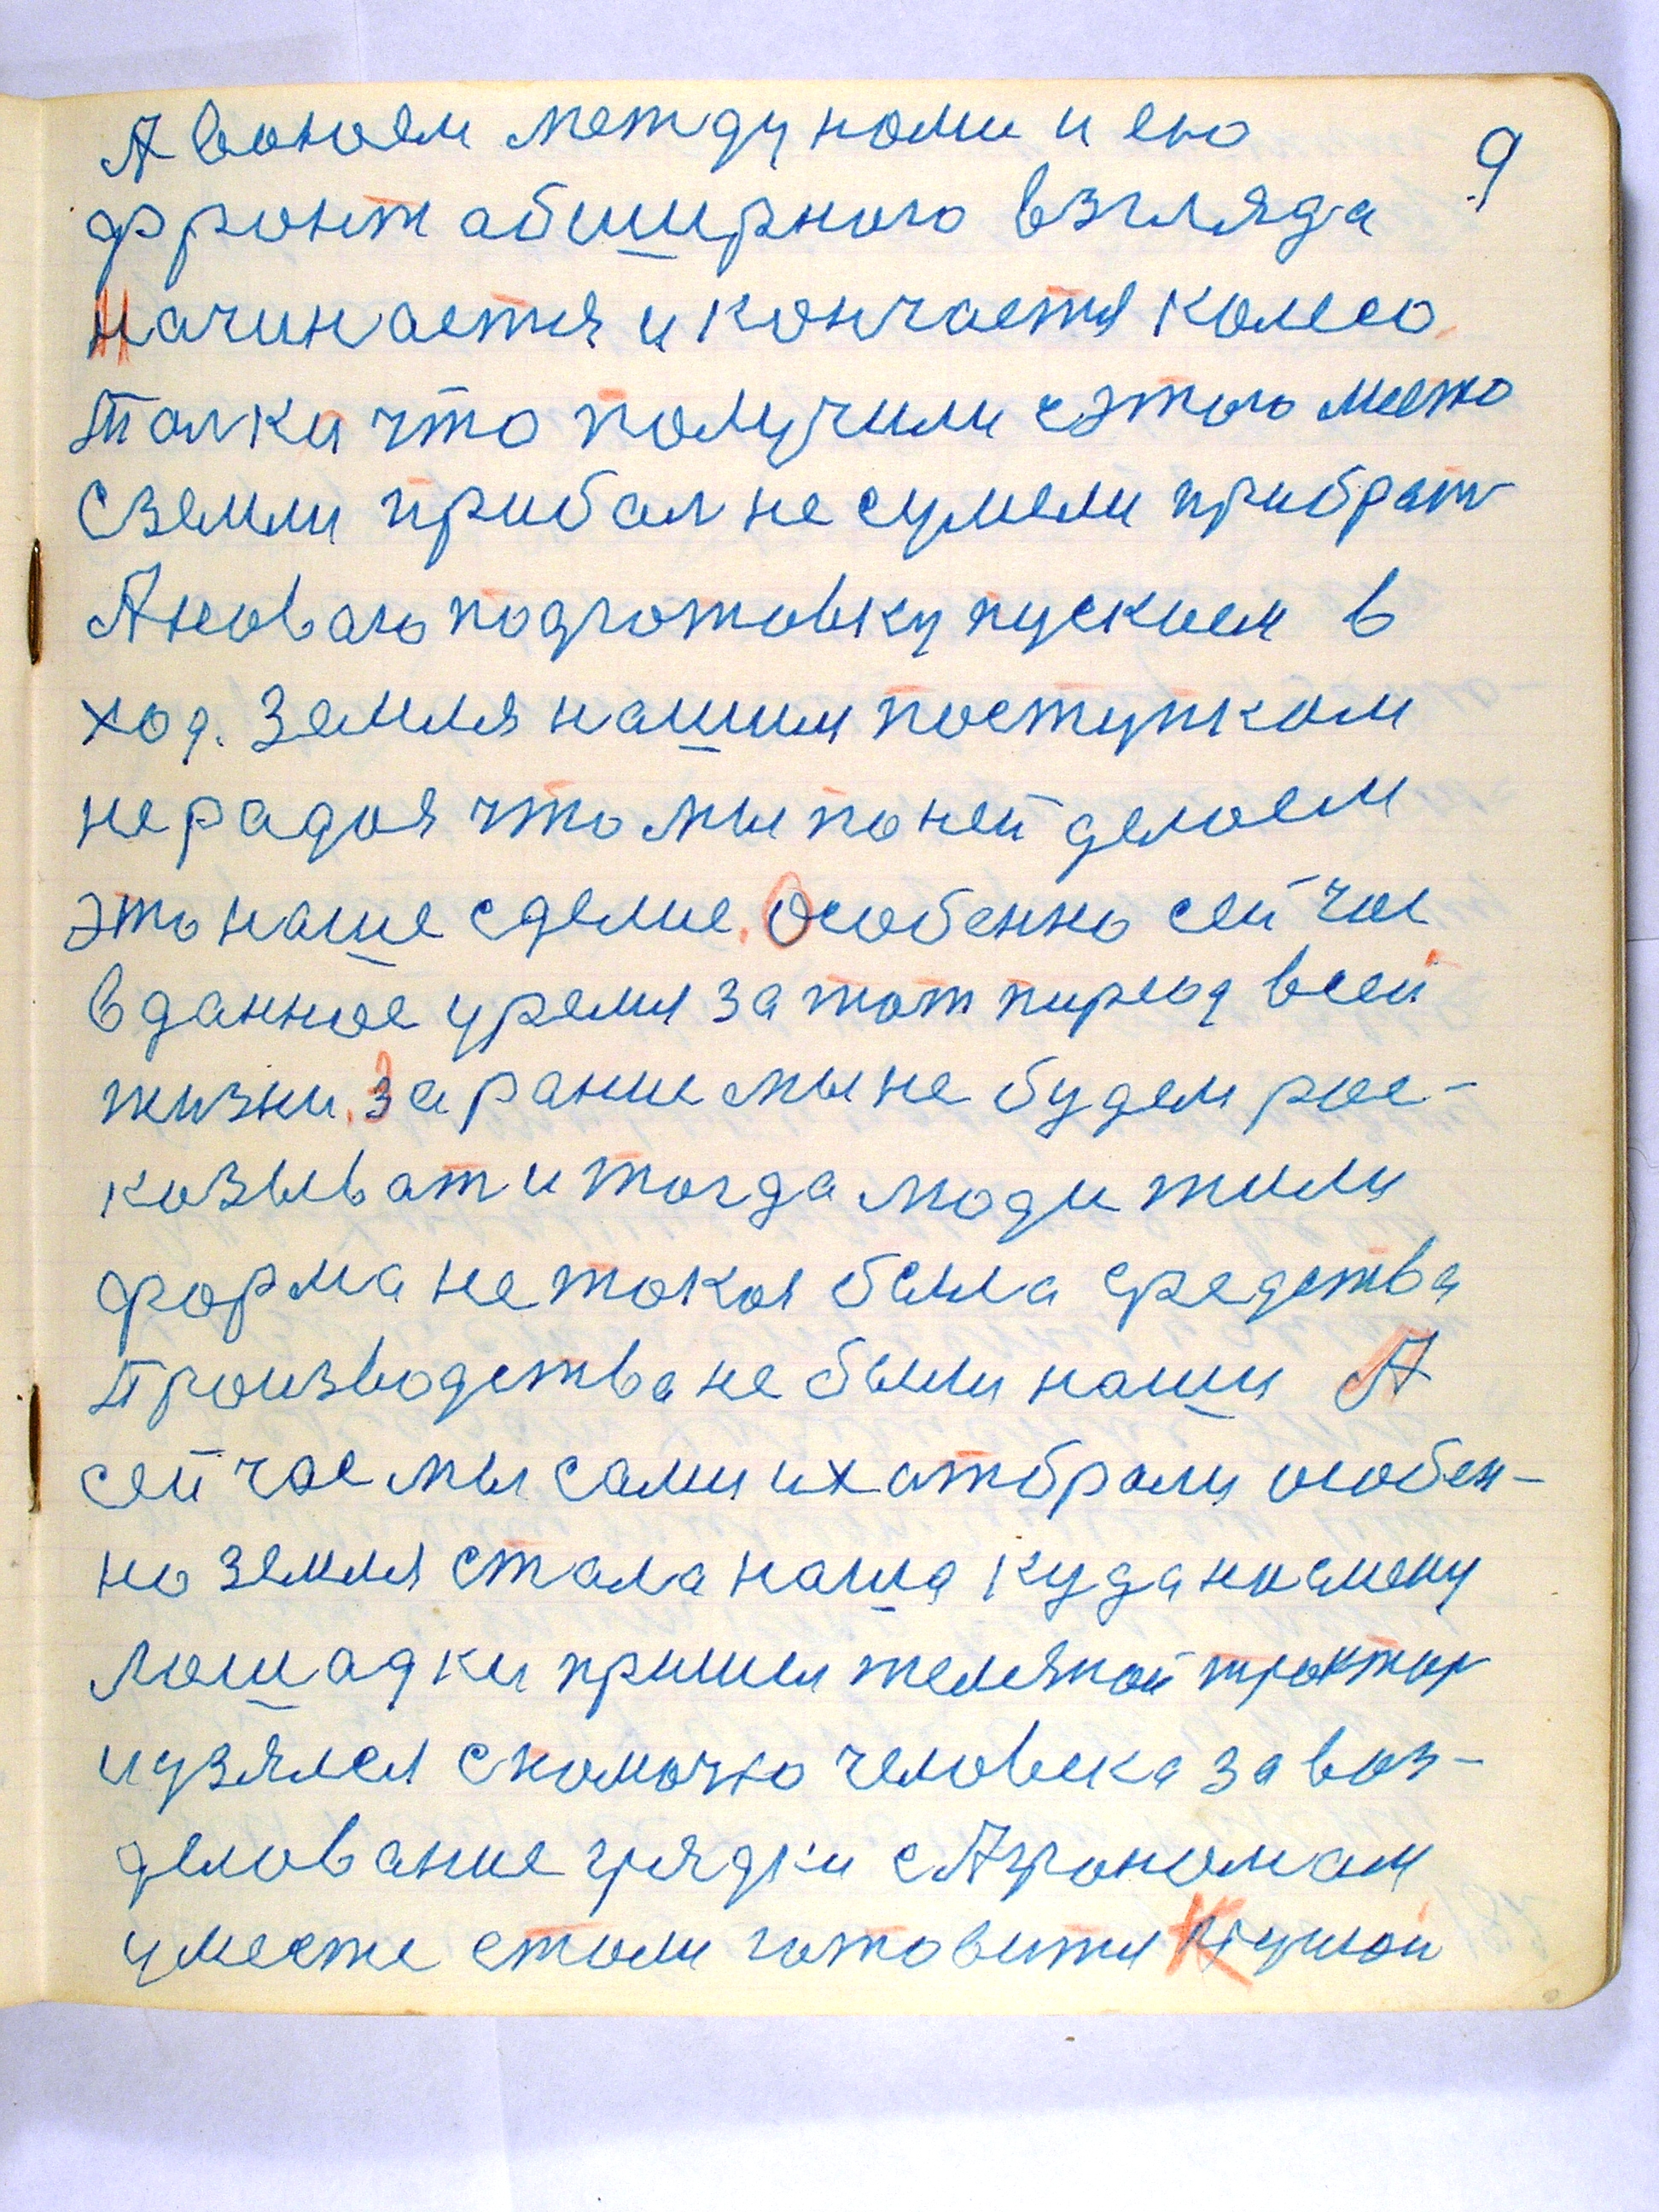 9
А воюем между нами и ею
фронт абширного взгляда
Начинается и кончается колесо.
Талка что получили с этого место
Сземли прибал не сумели прибрат
А новаю подготовку пускаем в
ход. Земля нашим поступкам
не радая что мы по ней делаем
это наше сделие. Особенно сейчас
в данное уремя за тот пириод всей
жизни. За рание мы не будем рас-
казыват и тогда люди жили
форма не такая была средства
Производства не были наши А
сейчас мы сами их атбрали особен-
но земля стала наша куда на смену
лошадки пришел железной трактор
и узялся с помочю человека за воз-
делование грядки с Агрономам
уместе стали готовится к одной